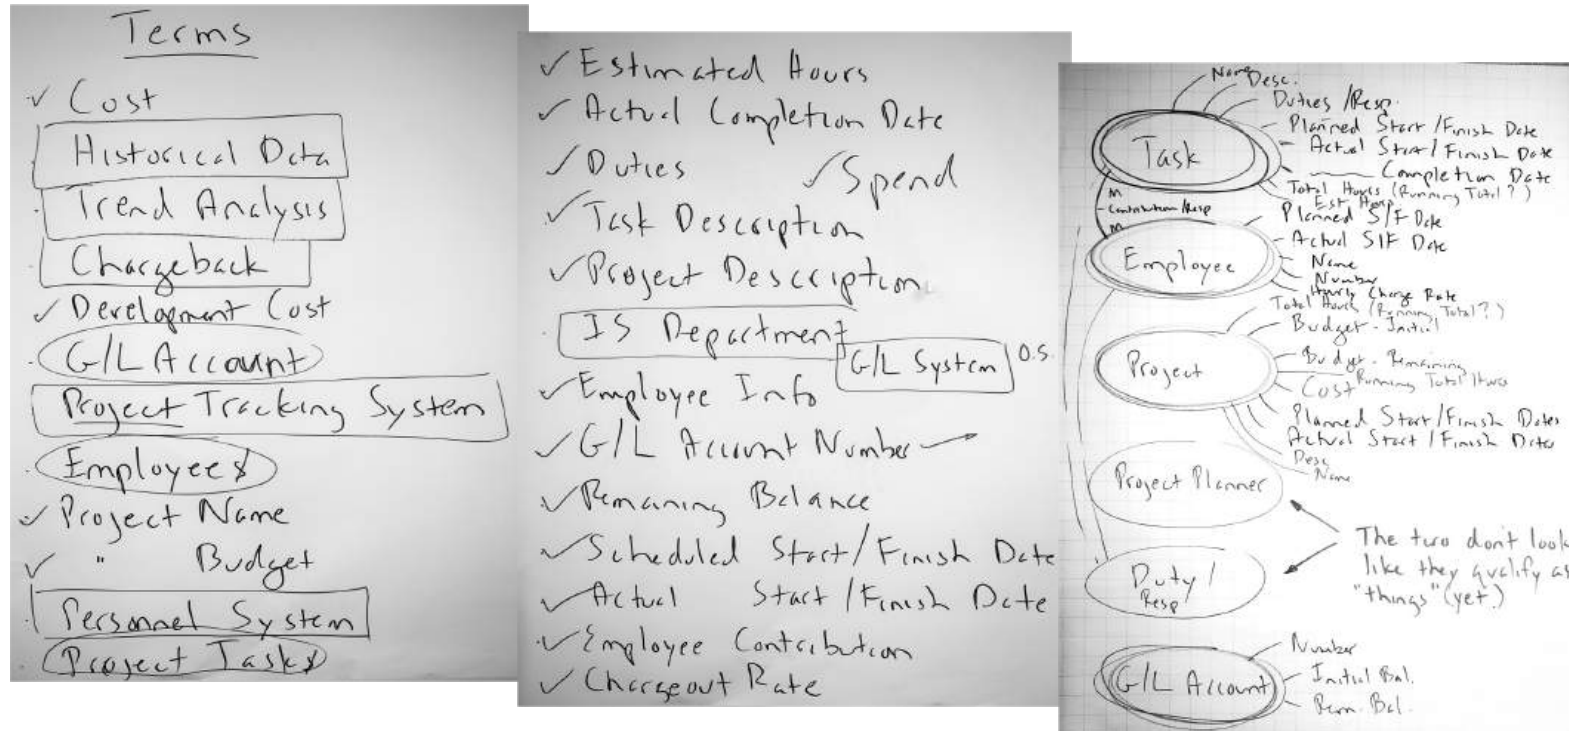 Terms
Cost
Historical Data
Trend Analysis
Chargeback
Development Cost
G/L Account
Project Tracking System
Employees
Project Name
" Budget
Personnel System
Project Tasks
Estimated Hours
Actual Completion Date
Duties
Spend
Task Description
Project Description
IS Department
G/L System
O.S.
Employee Info
G/L Account Number
Remaining Balance
Scheduled Start/Finish Date
Actual Start/Finish Date
Employee Contribution
Chargeout Rate
Name
Desc.
Duties/Resp.
Planned Start/Finish Date
Actual Start/Finish Date
Completion Date
Total Hours (Running Total?)
Est Hours
Task
M
Contribution/Resp
M
Planned S/F Date
Actual S/F Date
Name
Number
Hourly Charge Rate
Employee
Total Hours (Running Total?)
Budget - Initial
Budget - Remaining
Running Total Hours
Cost
Planned Start/Finish Dates
Actual Start/Finish Dates
Desc
Name
Project
Project Planner
The two don't look
like they qualify as
"things" (yet.)
Duty/
Resp
Number
Initial Bal.
Rem. Bal.
G/L Account